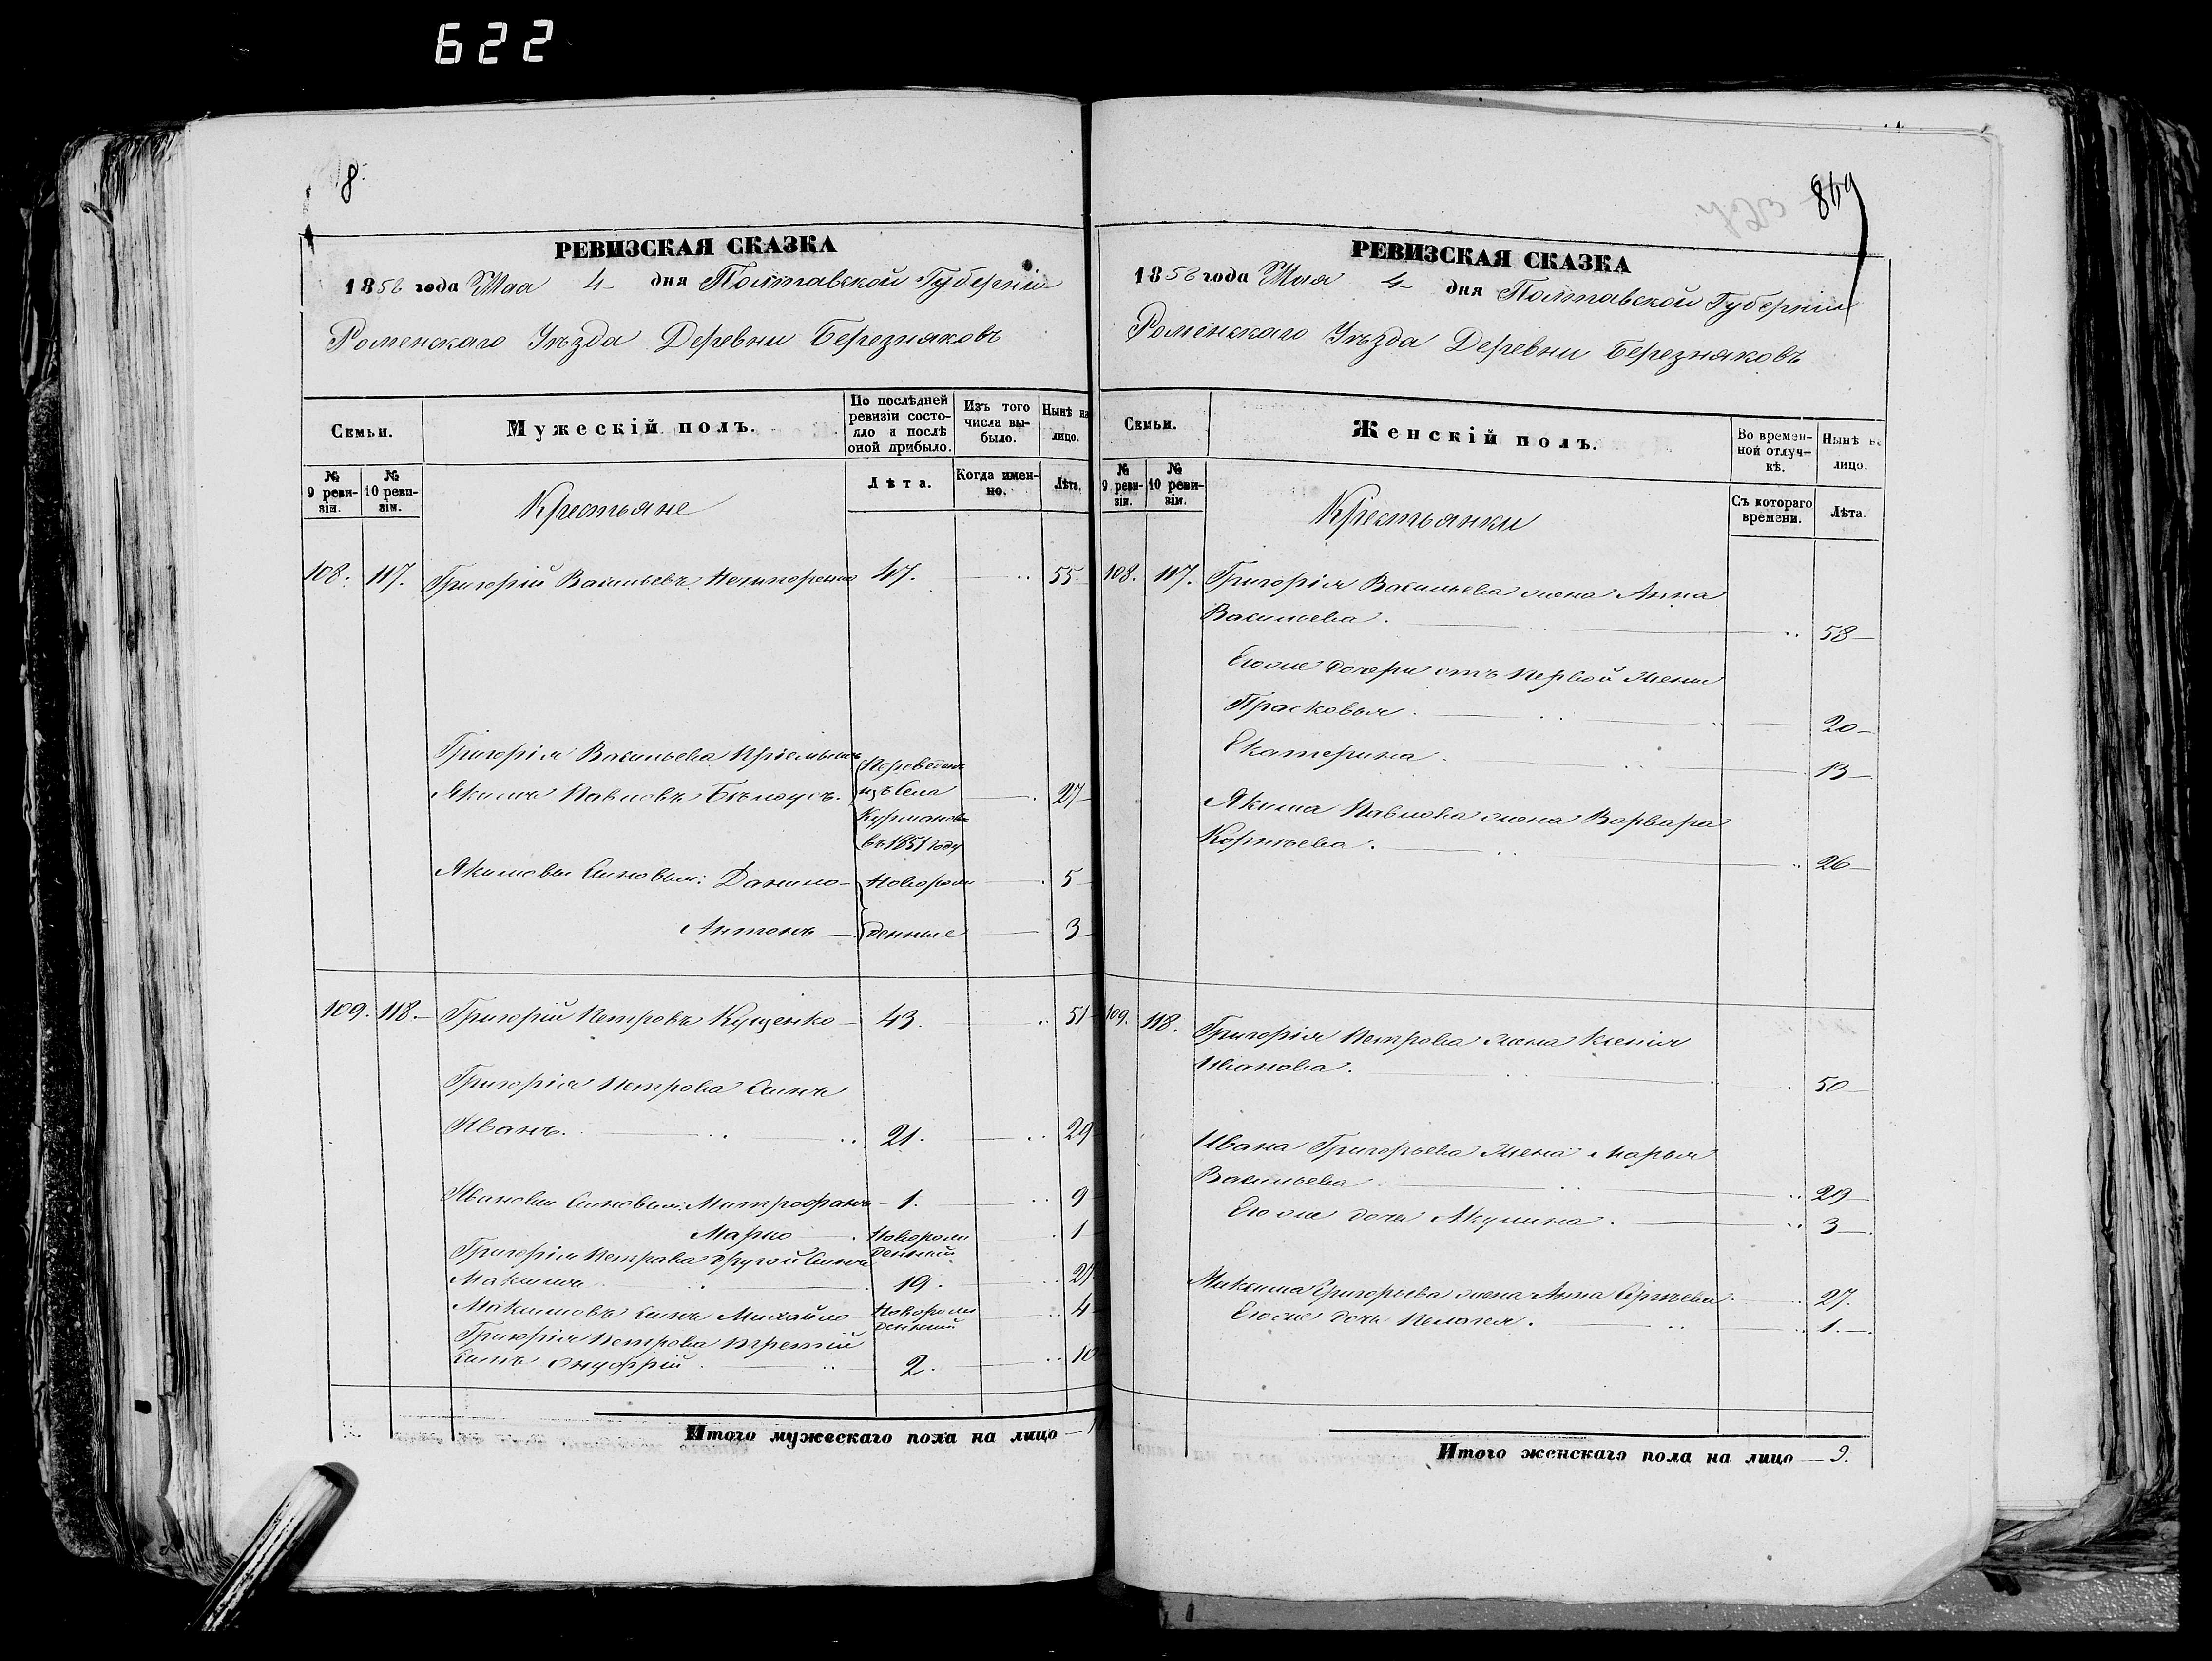 622
8
РЕВИЗСКАЯ СКАЗКА
1858 года Мая 4 дня Полтавской Губерніи
Роменскаго Уѣзда Деревни Березняковъ
Семьи.
Мужескій полъ.
По послѣдней ревизіи состояло и послѣ оной прибыло.
Изъ того числа выбыло.
Нынѣ на лицо.
№ 9 ревизіи.
№ 10 ревизіи.
Крестьяне
Лѣта.
Когда именно.
Лѣта.
108. 117. Григорій Васильевъ 47. 55
Григорія Васильева Пріемышъ
Якимъ Павловъ Бѣлоусъ. Переведенъ изъ Села в 1851 году 27
Якимовы Сыновья: Данило Новорож 5
Антонъ денные 3
109. 118. Григорій Петровъ Куценко 43. 51
Григорія Петрова Сынъ
Иванъ. 21. 29
Ивановы Сыновья: Митрофанъ 1. 9
Марко Новорожденный 1
Григорія Петрова другой Сынъ
Максимъ 19. 27
Максимовъ Сынъ Михайло Новорожденный 4
Григорія Петрова третій
Сынъ Онуфрій 2. 10
Итого мужескаго пола на лицо
869
РЕВИЗСКАЯ СКАЗКА
1858 года Мая 4 дня Полтавской Губерніи
Роменскаго Уѣзда Деревни Березняковъ
Семьи.
Женскій полъ.
Во временной отлучкѣ.
Нынѣ на лицо.
№ 9 ревизіи.
№ 10 ревизіи.
Крестьянки
Съ котораго времени.
Лѣта.
108. 117. Григорія Васильева жена Анна
Васильева. 58
Его же дочери отъ первой жены
Прасковья. 20
Екатерина. 13
Якима Павлова жена Варвара
Корнѣева. 26
109. 118. Григорія Петрова жена Ксенія
Иванова. 50
Ивана Григорьева жена Марья
Васильева 29
Его же дочь Акулина. 3
Максима Григорьева жена Анна Сергѣева 27.
Его же дочь Пелагея. 1.
Итого женскаго пола на лицо 9.